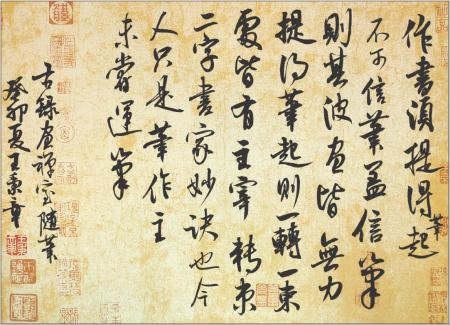 作書須提得筆起
不可信筆盖信筆
則其波画皆無力
提得筆起則一轉一束
處皆有主宰轉束
二字書家妙诀也今
人只是筆作主
未嘗運筆
右録画禅室随筆
癸卯夏王章